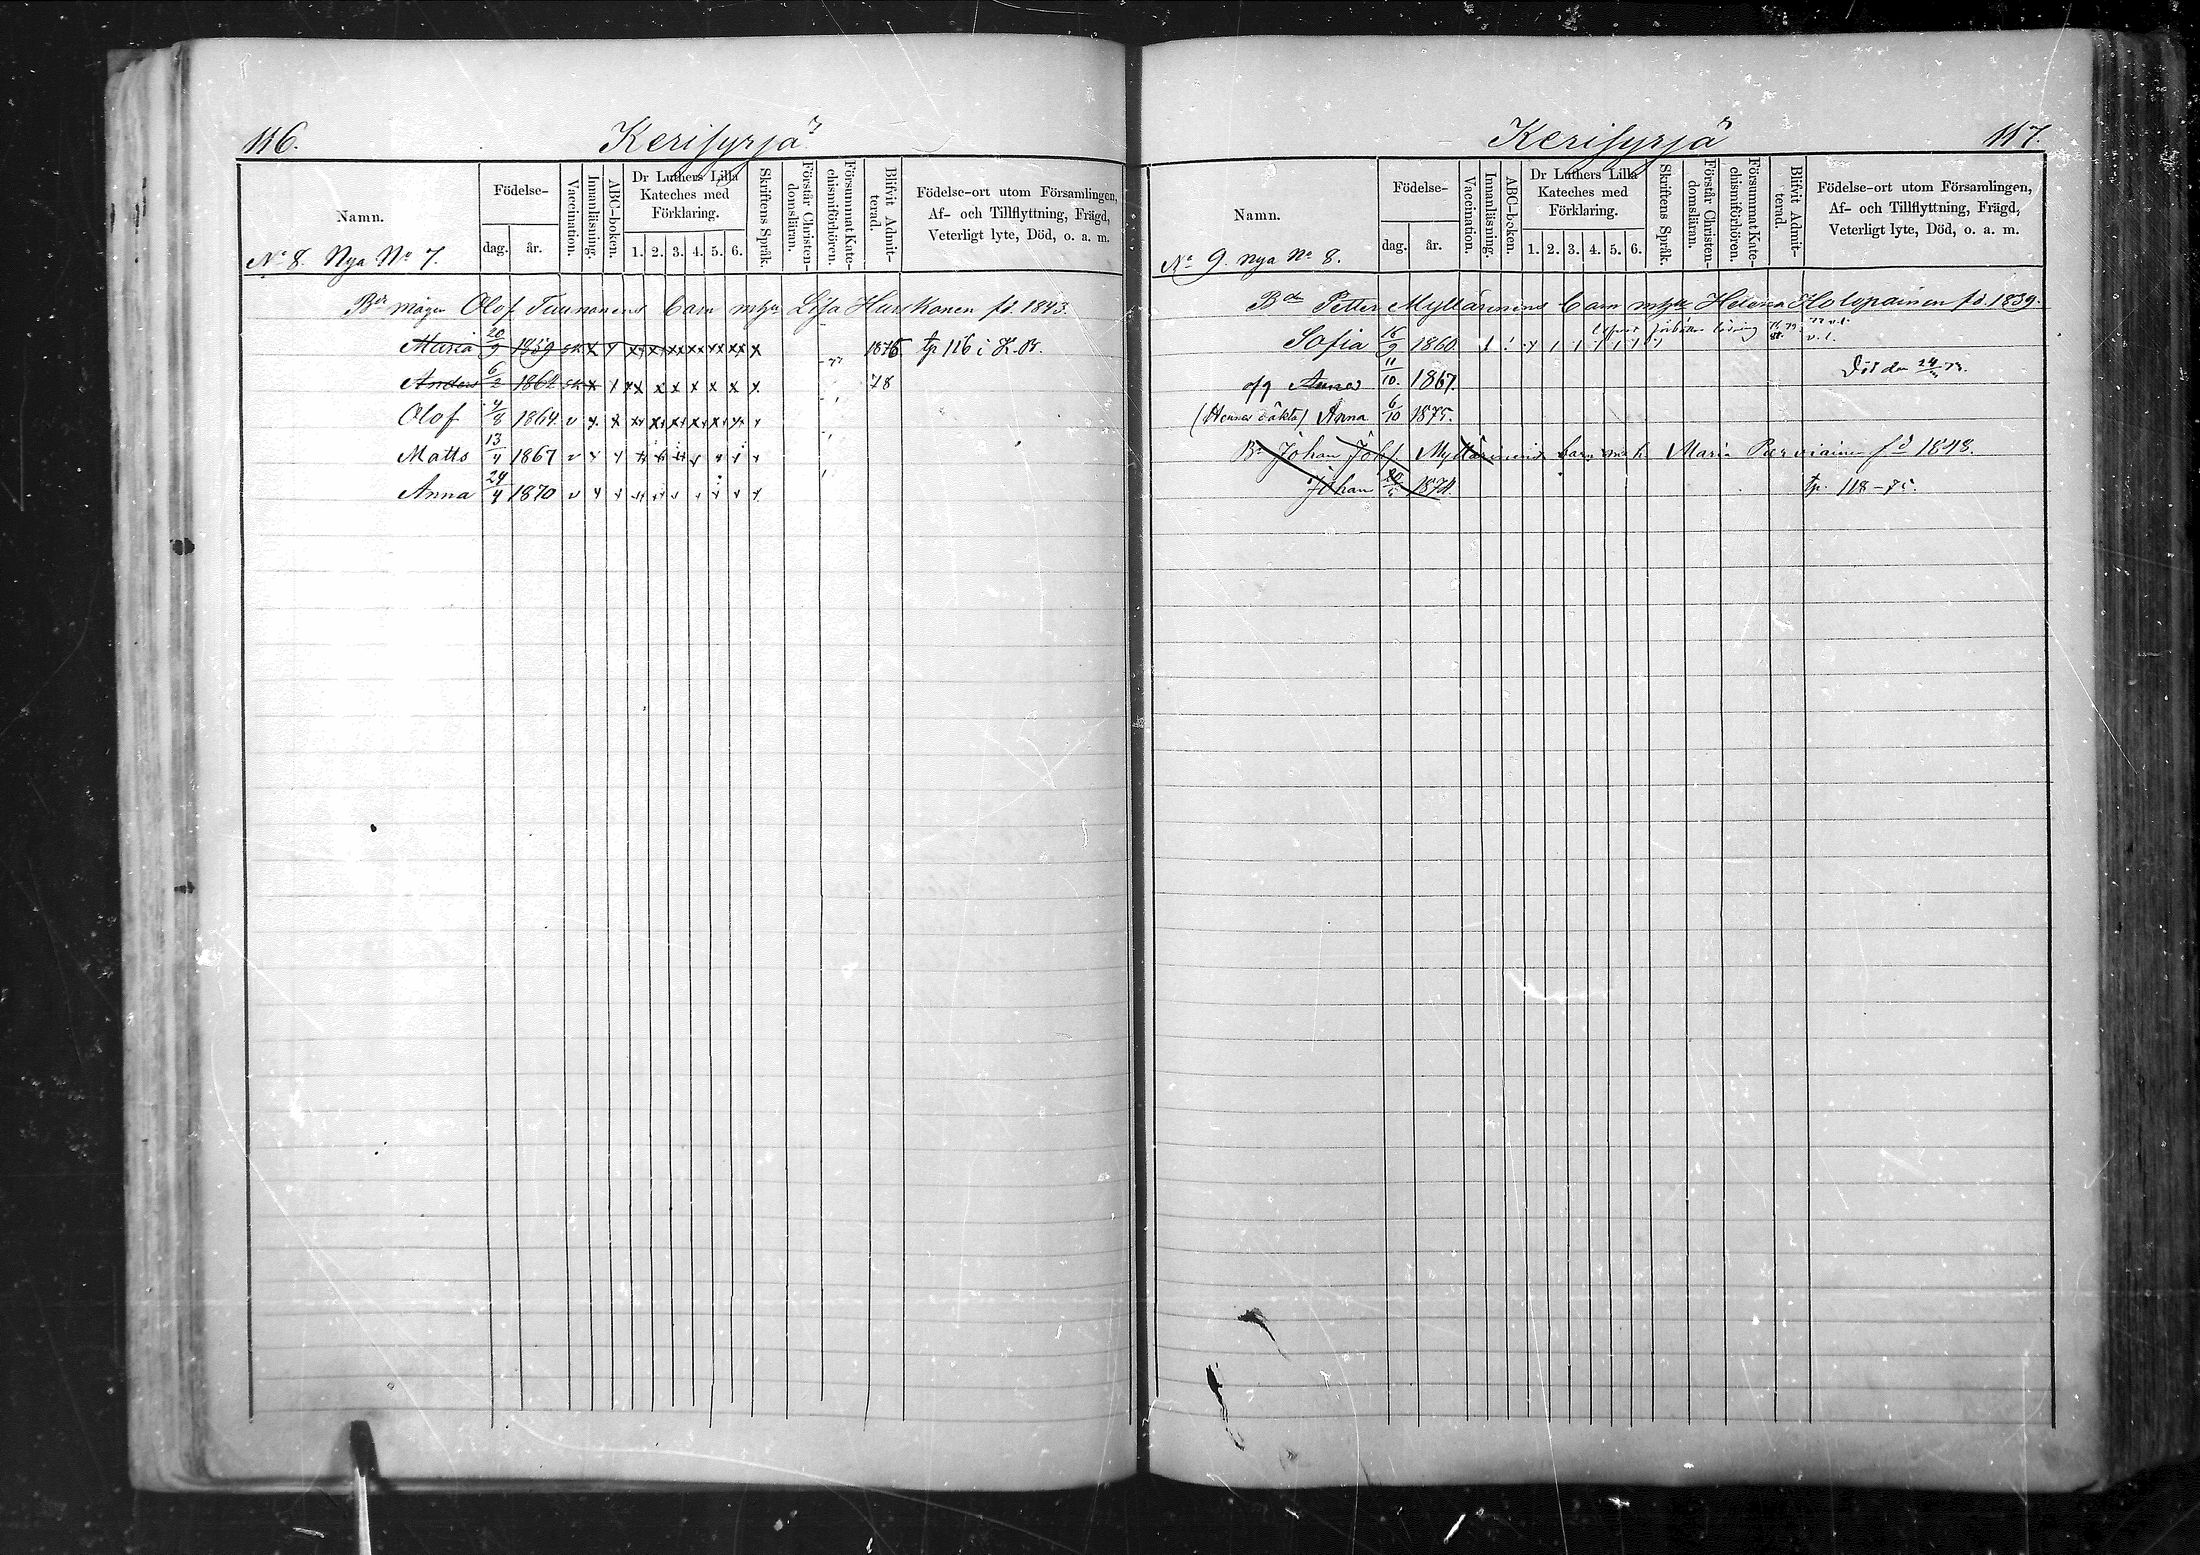 116.
Kerisyrjä
Namn.
Födelse-
dag. år.
Vaccination.
Innanläsning.
ABC-boken.
Dr Luthers Lilla Kateches med Förklaring.
1. 2. 3. 4. 5. 6.
Skriftens Språk.
Förstår Christendomsläran.
Försummat Katechismiförhören.
Blifvit Admitterad.
Födelse-ort utom Församlingen, Af- och Tillflyttning, Frägd, Veterligt lyte, Död, o. a. m.
No 8. Nya No 7.
Olof barn Lisa Huskonen fd. 1843.
Maria 20/9 1859 1876 tp 116 i K.B.
Anders 6/2 1862 78
Olof 4/8 1864 v
Matts 13/4 1867 v
Anna 24/4 1870 v
Kerisyrjä
117.
Namn.
Födelse-
dag. år.
Vaccination.
Innanläsning.
ABC-boken.
Dr Luthers Lilla Kateches med Förklaring.
1. 2. 3. 4. 5. 6.
Skriftens Språk.
Förstår Christendomsläran.
Försummat Katechismiförhören.
Blifvit Admitterad.
Födelse-ort utom Församlingen, Af- och Tillflyttning, Frägd, Veterligt lyte, Död, o. a. m.
No 9. nya No 8.
Petter Myllärinens barn Helena Holopainen fd. 1839.
Sofia 16/9 1860
11/10. 1867. Död den
Anna 6/10 1875.
Johan Maria Parviainen fd 1848.
Johan 1874. tp. 118-75.